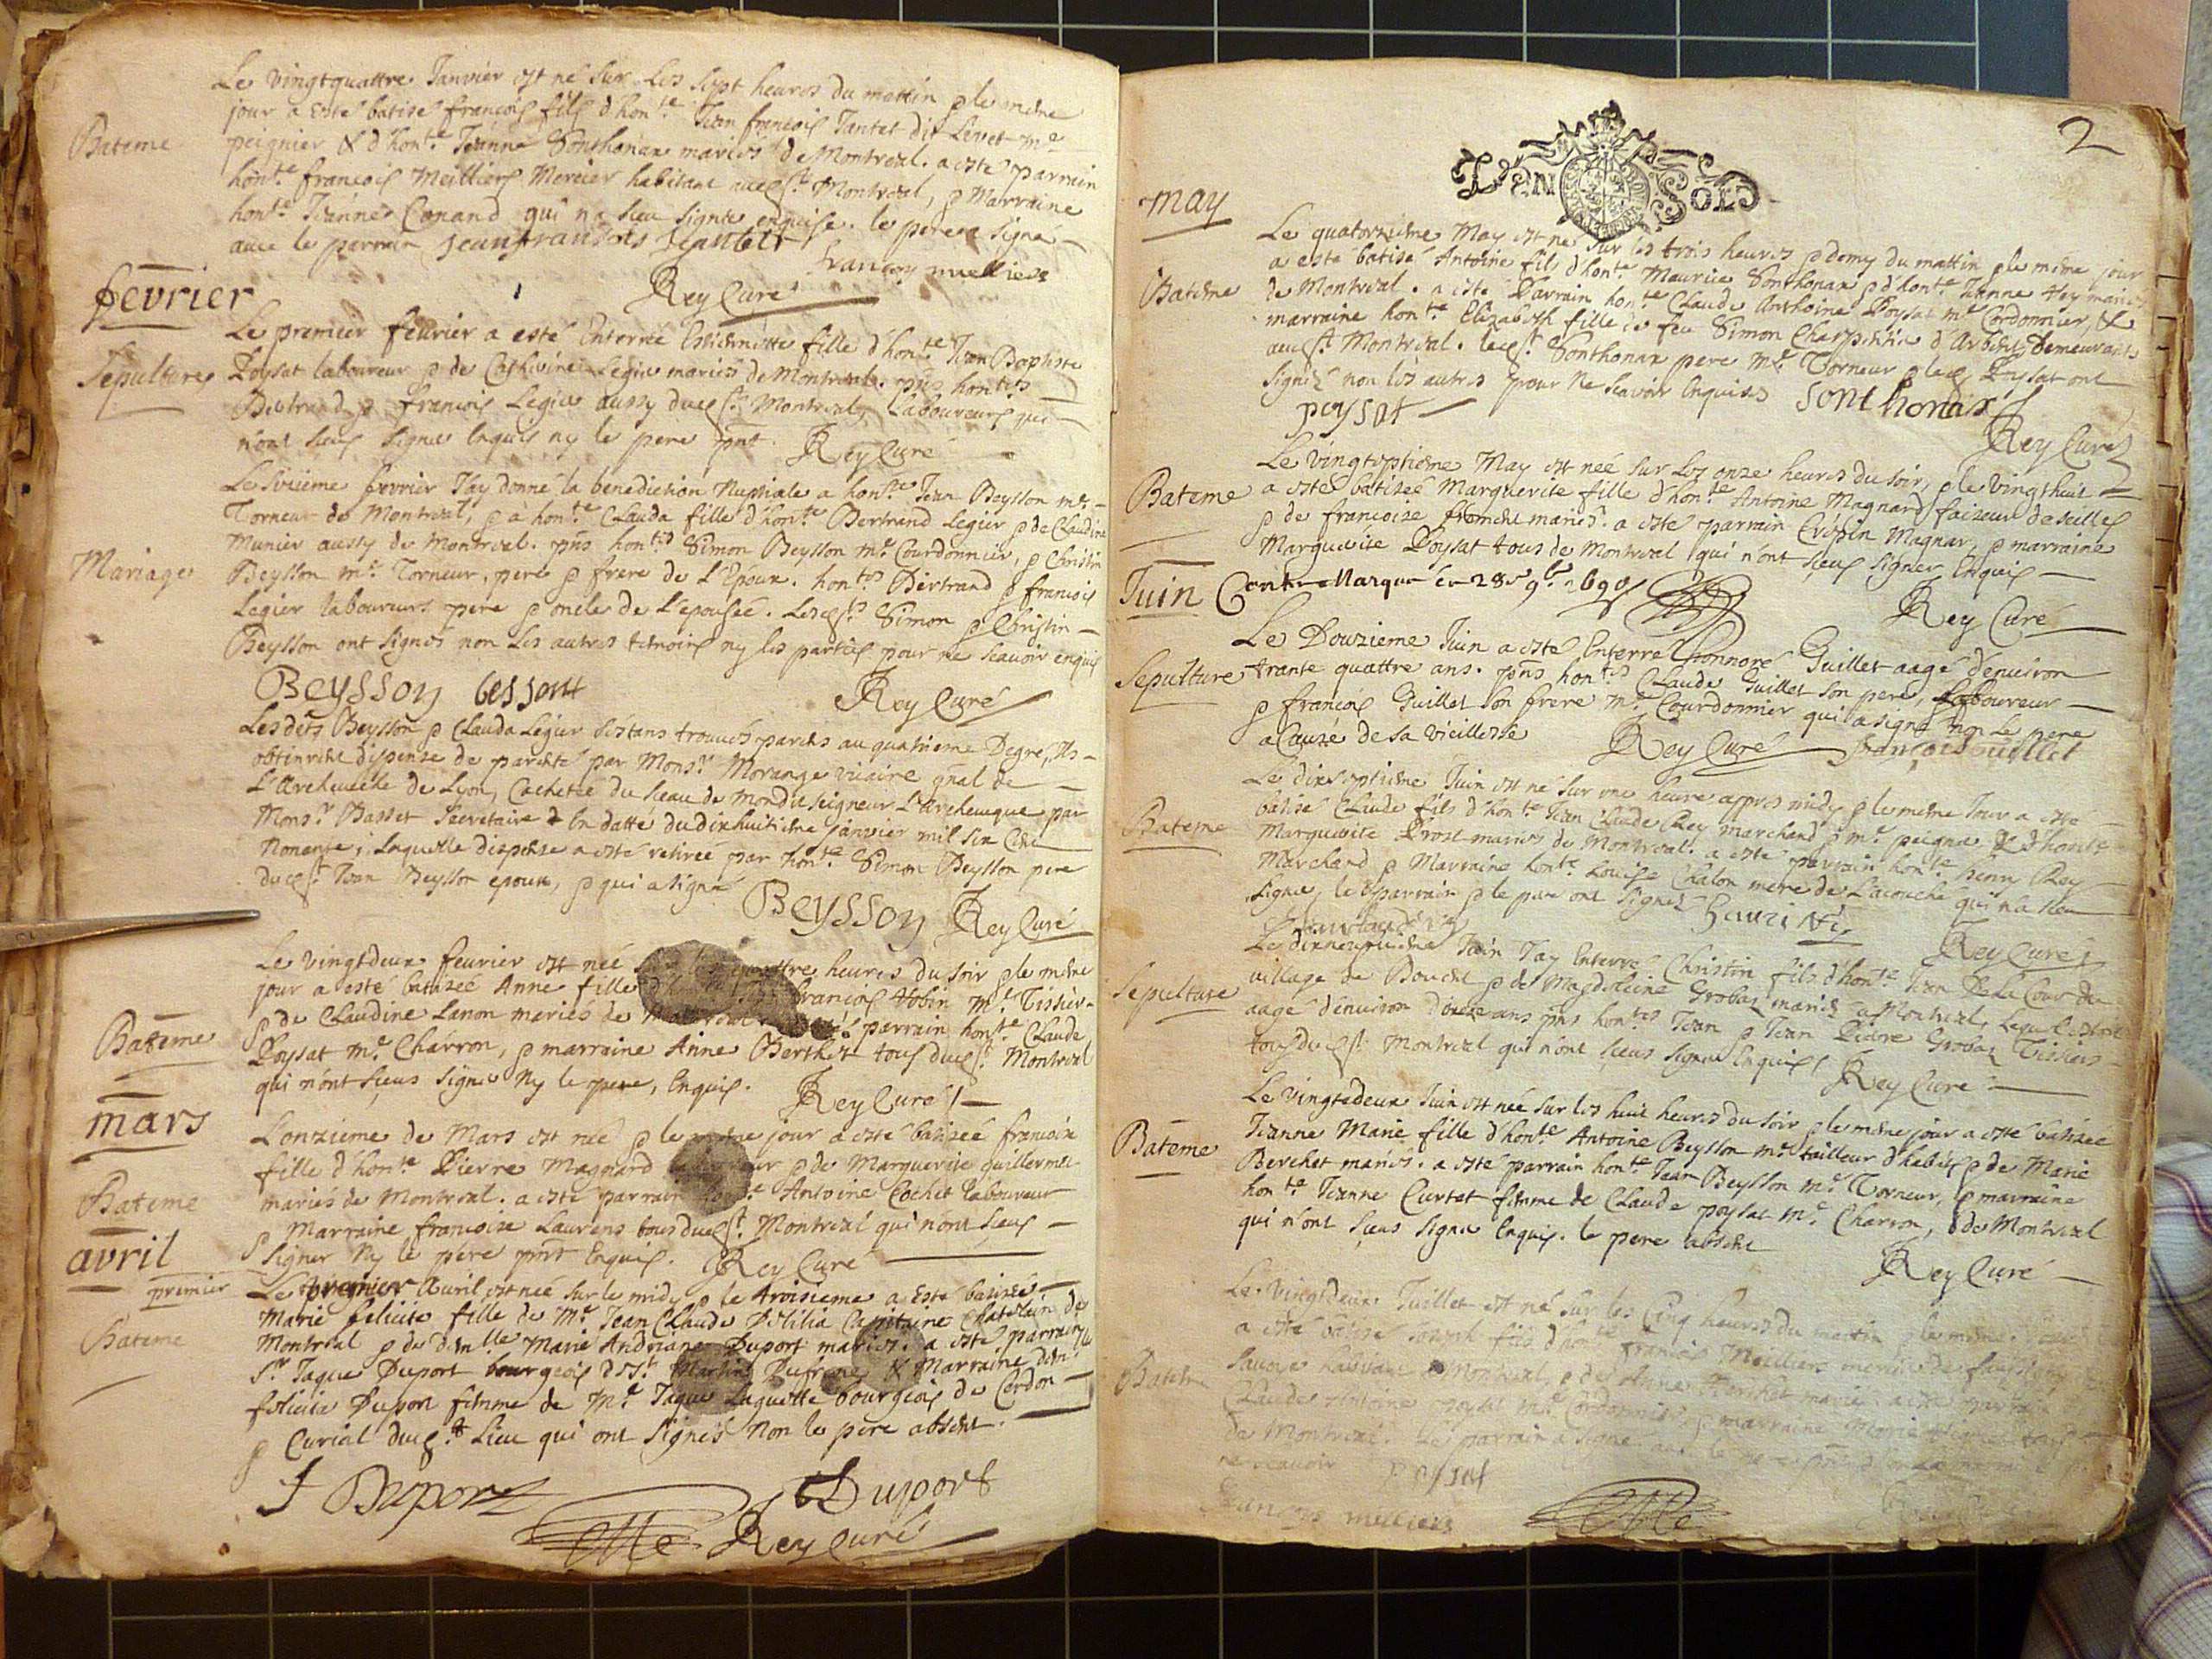 Le vingtquattre Janvier est né sur les sept heures du mattin & le même
jour a esté batisé françois fils d'hon.te Jean françois Jantet dit Levet m.e
Bateme
peignier & d'hon.te Jeanne Sonthonax mariés de Montreal. a esté parrain
hon.te françois Meilliers Mercier habitant aud.t Montreal, & Marraine
hon.te Jeanne Conand qui n'a sceu signer enquise. le pere a signé
avec le parrain Jeanfransois Jantet
françoy meilliers
Rey Curé
fevrier
Le premier fevrier a esté Enterrée Estiennette fille d'hon.te Jean Baptiste
Sepulture
Poysat laboureur & de Catherine Legier mariés de Montreal. pñs hon.tes
Bertrand & françois Legier aussy dud.t Montreal, Laboureurs qui
n'ont sceus signer Enquis ny le pere pñt. Rey Curé
Le fevrier J'ay donné la benediction Nuptiale a hon.te Jean Beysson m.e
Torneur de Montreal, & à hon.te Clauda fille d'hon.te Bertrand Legier & de Claudine
Munier aussy de Montreal. pñs hon.tes Simon Beysson m.e Courdonnier, & Christin
Mariage
Beysson m.e Torneur, pere & frere de L'Epoux. hon.tes Bertrand & françois
Legier laboureurs pere & oncle de L'epousée. Lesd.ts Simon & Christin
Beysson ont signés non les autres temoins ny les parties pour ne scavoir enquis
Beysson bessont
Rey Curé
Lesdits Beysson & Clauda Legier s'estans trouvés parens au quatrieme Degre, Ils
obtinrent dispense de parenté par Mons.r Morange vicaire gñal de
L'Archeveché de Lyon, Cachetée du sceau de Mondit seigneur L'Archeveque par
Mons.r Basset Secretaire & En datte du dixhuitieme janvier mil six Cent
Nonante; Laquelle dispense a esté retirée par hon.te Simon Beysson pere
dud.t Jean Beysson epoux, & qui a signé
Beysson Rey Curé
Le vingtdeux fevrier est née quattre heures du soir & le même
jour a esté batisée Anne fille françois Aobin M.e Tissier
& de Claudine Lanon mariés de parrain hon.te Claude
Bateme
Poysat m.e Charron, & marraine Anne Berthet tous dud.t Montreal
qui n'ont sceus signer Ny le pere, Enquis. Rey Curé
mars
L'onzieme de Mars est née & le même jour a esté batisée françoise
fille d'hon.te Pierre Magnard laboureur & de Marguerite guillermet
Bateme
mariés de Montreal. a esté parrain hon.te Antoine Cochet laboureur
& Marraine francoise Laurens tous dud.t Montreal qui n'ont sceus
signer Ny le pere pñt Enquis. Rey Curé
avril
premier
Le premier Avril est née sur le midy & le troisieme a esté batisée
Bateme
Marie felicité fille de M.e Jean Claude Delilia Capitaine Chatelain de
Montreal & de dem.lle Marie Andriane Duport mariés. a esté parrain
S.r Jaque Duport bourgeois & Marraine dem.lle
felicité Duport femme de M.e Jaque Luquette bourgeois de Cordon
& Curial dud.t Lieu qui ont signés Non le pere absent.
J Duport Duport
Rey Curé
2
DEN SOLS
may
Le quatorzieme May est né sur les trois heures & demy du mattin & le même jour
a esté batisé Antoine fils d'hon.te Maurice Sonthonax & d'hon.te Jeanne Rey mariés
Bateme
de Montreal. a esté Parrain hon.te Claude Anthoine Poysat m.e Cordonnier, &
marraine hon.te Elizabeth fille de feu Simon Charpentier d'Arbent Demeurant
aud.t Montreal. led.t Sonthonax pere m.e Torneur & led.t Poysat ont
signé non les autres pour Ne scavoir Enquises
poysat Sonthonax
Rey Curé
Le vingtseptieme May est née sur les onze heures du soir, & le vingthuit
Bateme
a esté batisée Marguerite fille d'hon.te Antoine Magnard faizeur de seilles
& de francoise froment mariés. a esté parrain Crépin Magnar, & marraine
Marguerite Poysat tous de Montreal qui n'ont sceus signer Enquis
Juin
Contre Marque ce 28e 9bre 1690
Rey Curé
Le Douzieme Juin a esté Enterré honnoré Guillet aagé d'environ
Sepulture
trante quattre ans. pñs hon.tes Claude Guillet son pere, Laboureur
& françois Guillet son frere m.e Courdonnier qui a signé non Le pere
a Cause de sa vieillesse Rey Curé françois Guillet
Le dixseptieme Juin est né sur une heure appres midy & le même Jour a esté
batisé Claude fils d'hon.te Jean Claude Rey marchand & m.e peignier & d'hon.te
Bateme
Marguerite Prost mariés de Montreal. a esté parrain hon.te henry Rey
Marchand & Marraine hon.te Louise Chalon mere de L'acouchée qui n'a sceu
signer, le parrain & le pere ont signés
Rey Curé
Le dixneuvieme Juin J'ay Enterré Christin fils d'hon.te Jean De La Cour du
Sepulture
village de Bouchet & de Magdeleine Grobaz mariés a Montreal, Lequel estoit
aagé d'environ ans pñs hon.tes Jean & Jean Pierre Grobaz Tissiers
tous dud.t Montreal qui n'ont sceus signer Enquis Rey Curé
Le vingtedeux Juin est née sur les huit heures du soir & le même jour a esté batisée
Jeanne Marie fille d'hon.te Antoine Beysson m.e tailleur d'habits & de Marie
Bateme
Berchet mariés. a esté parrain hon.te Jean Beysson m.e Torneur, & marraine
hon.te Jeanne Curtet femme de Claude poysat m.e Charron, de Montreal
qui n'ont sceus signer Enquis. le pere absent
Rey Curé
Le vingtdeux Juillet est né sur les Cinq heures du mattin & le même jour
a esté batisé Joseph fils d'hon.te françois Meilliers mercier de
Bateme
Savoye habitant a Montreal, & de Anne Berchet mariés a esté parrain
Claude Antoine Poysat m.e Cordonnier & marraine Marie
de Montreal. Le parrain a signé avec le pere
ne scavoir poysat
francoys meilliers